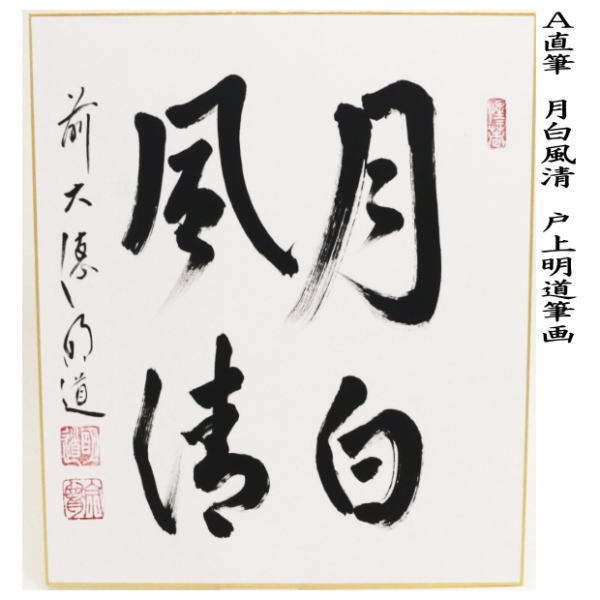 A直筆　月白風清　戸上明道筆画
月白
風清
前大徳明道